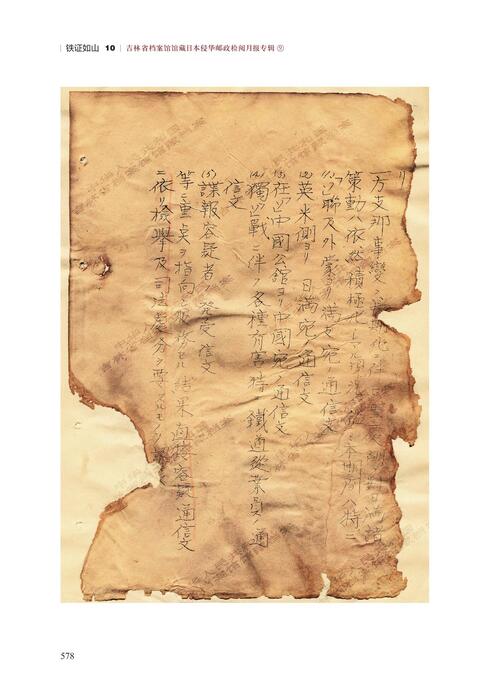 铁证如山 10 吉林省档案馆馆藏日本侵华邮政检阅月报专辑⑨
リ
一方支那事變
策動ハ依然積極化 本期間ハ特ニ
(1)ソ聯及外蒙ヨリ満支宛ノ通信文
(2)英米側ヨリ日満宛ノ通信文
(3)在ソ中國公館ヨリ中國宛ノ通信文
(4)獨ソ戰ニ伴ノ各種有害特ニ鐵道從業員ノ通
信文
(5)諜報容疑者ノ發受信文
等ニ重点ヲ指向 結果直接容疑通信文
ニ依リ檢擧及司法處分ヲ要スルモノ
578